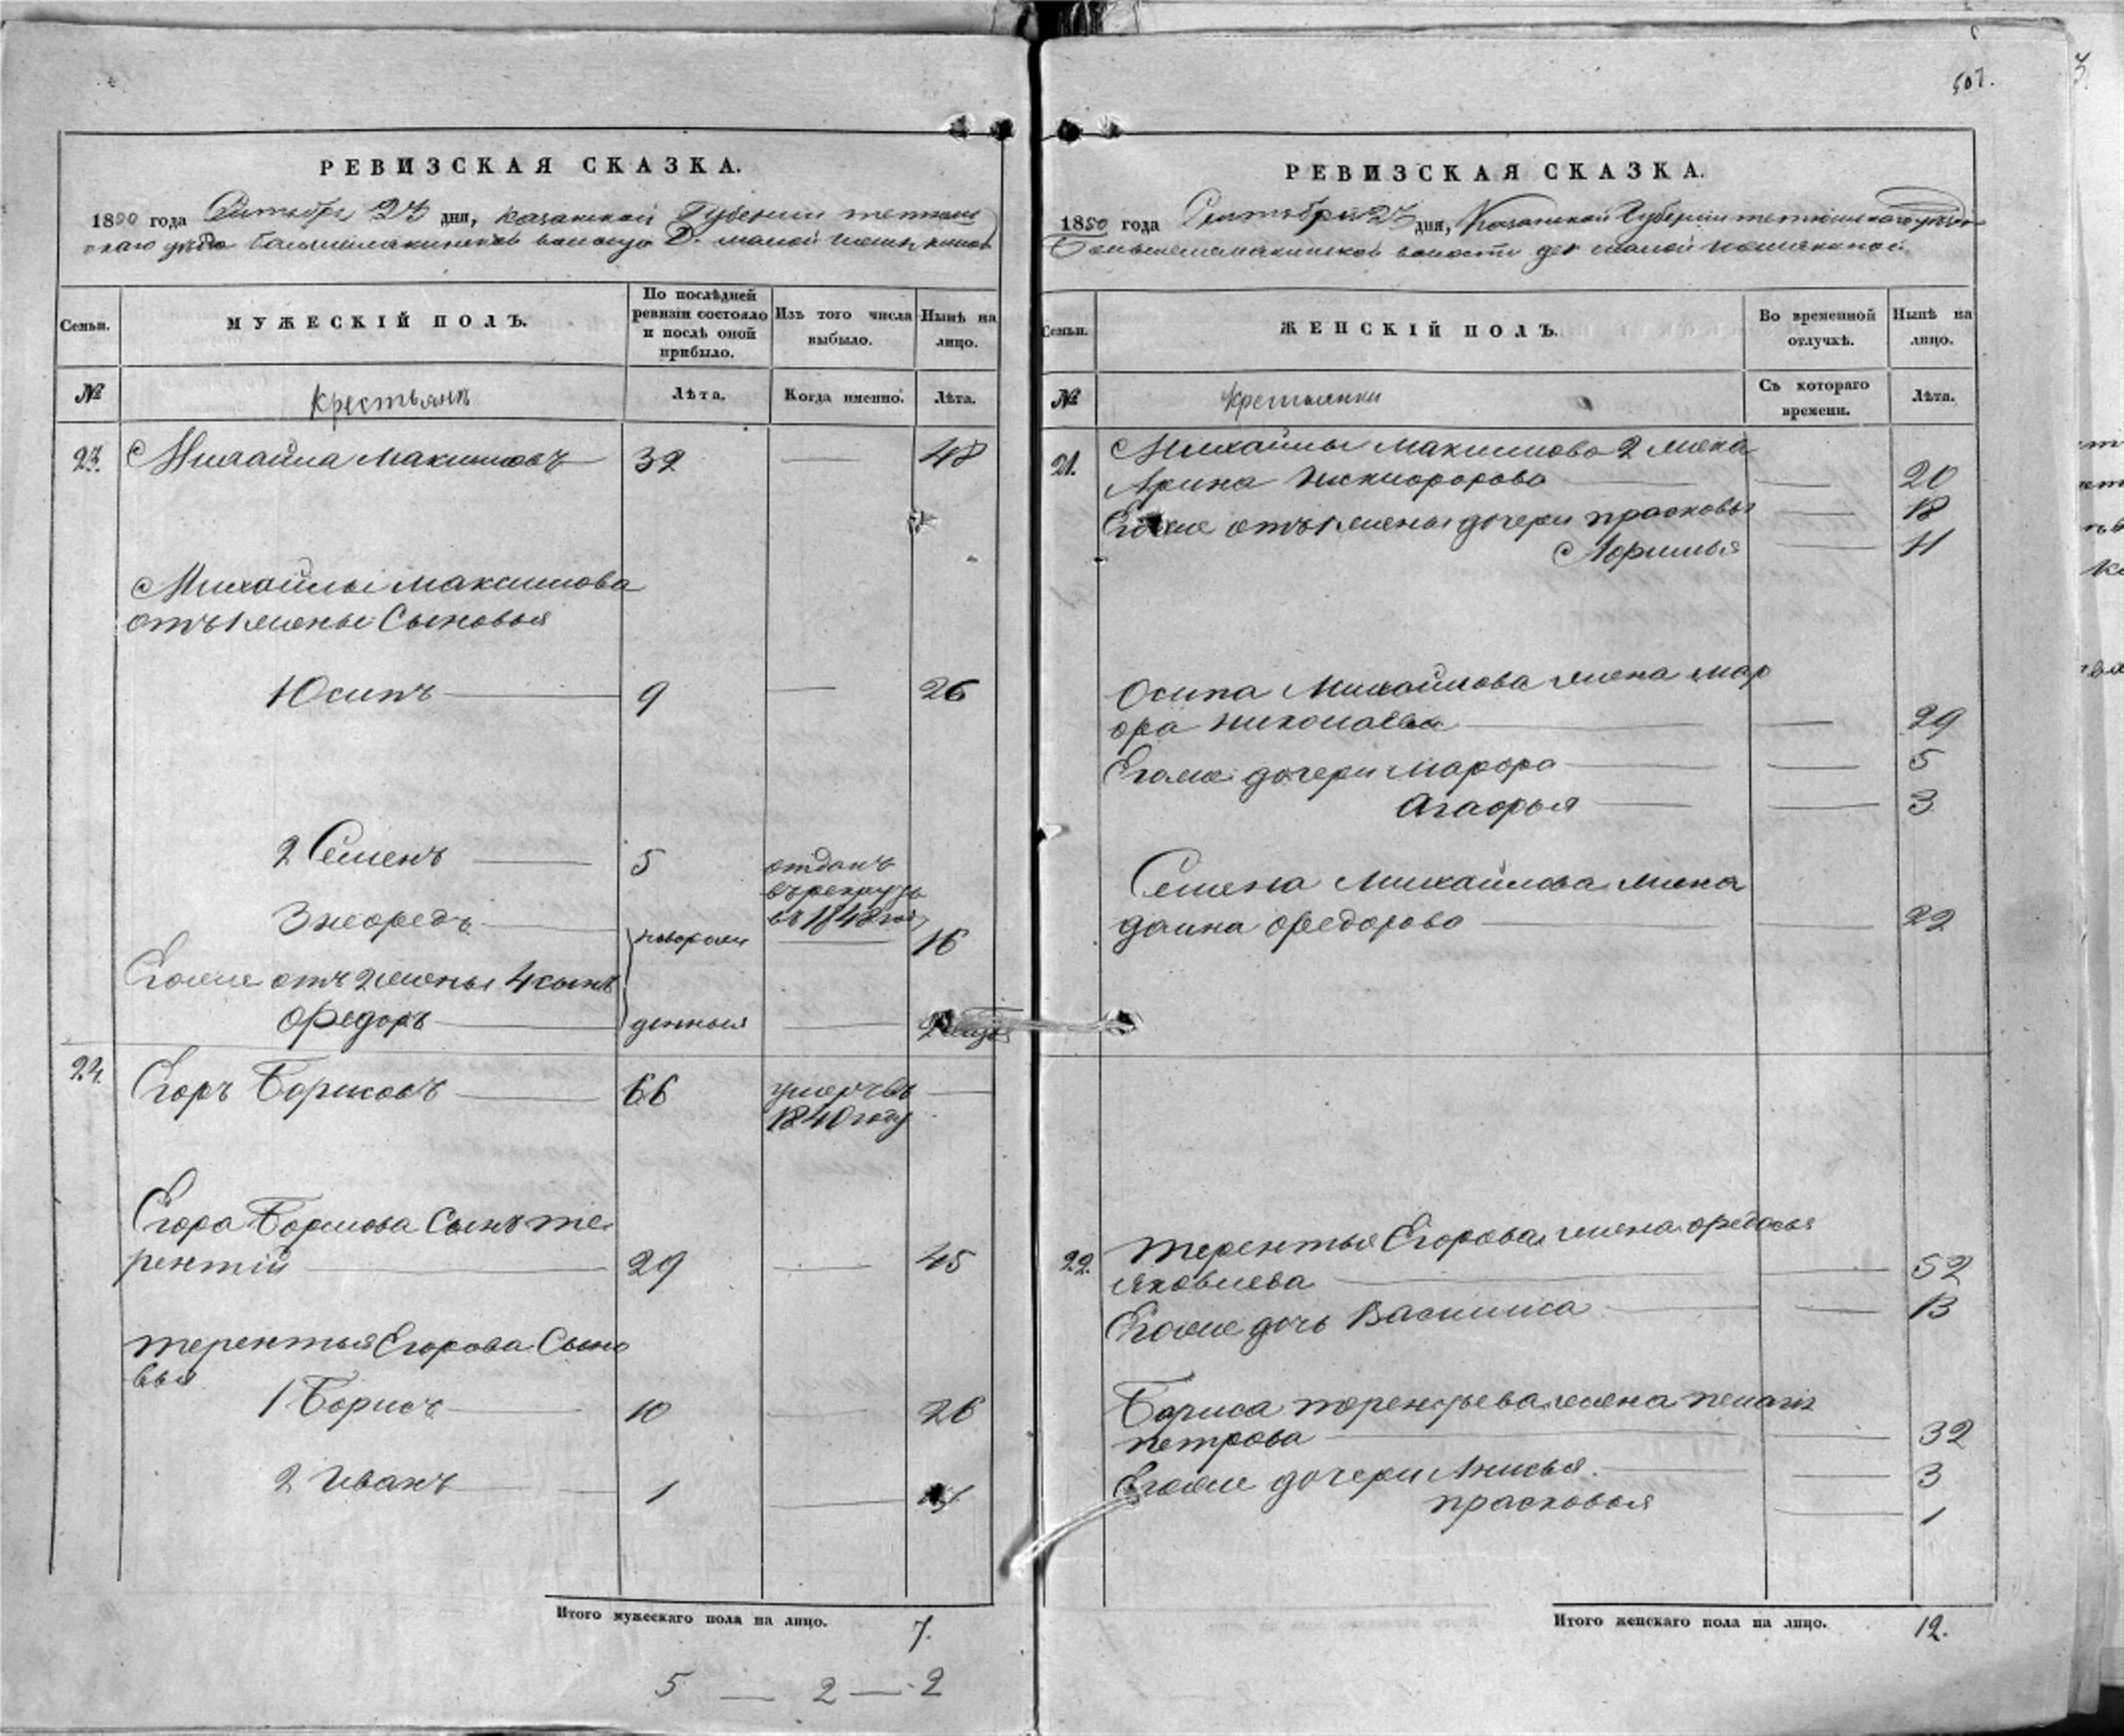 507.
РЕВИЗСКАЯ СКАЗКА.
1850 года Сентября 23 дня, Казанской Губернии тетюш
скаго уезда волости Д. малой
МУЖЕСКІЙ ПОЛЪ.
Семьи.
По послѣдней ревизіи состояло и послѣ оной прибыло.
Изъ того числа выбыло.
Нынѣ на лицо.
№
крестьянъ
Лѣта.
Когда именно.
Лѣта.
23. Михаила Максимовъ 32 — 48
Михайлы Максимова
отъ 1 жены Сыновья
1 Осипъ 9 — 26
2 Семенъ 5 отданъ
въ рекруты
въ 1848 году
3 неофедъ новорож — 16
Егоже отъ 2 жены 4 сынъ
Фведоръ денныя — 2
24. Егоръ Борисовъ 66 умеръ въ —
1840 году
Егора Борисова Сынъ те
рентій 29 — 45
терентья Егорова Сыно
вья
1 Борисъ 10 — 26
2 Иванъ 1 —
Итого мужескаго пола на лицо. 7.
5 — 2 — 2
РЕВИЗСКАЯ СКАЗКА.
1850 года Сентября 23 дня, Казанской Губернии тетюшскаго уезда
волости дер малой
ЖЕНСКІЙ ПОЛЪ.
Семьи.
Во временной отлучкѣ.
Нынѣ на лицо.
№
крестьянки
Съ котораго времени.
Лѣта.
21. Михайлы Максимова 2 жена
Арина Никифорова — 20
Егоже отъ 1 жены дочери прасковья — 13
Афимья — 11
Осипа Михайлова жена мар
фа николаева — 29
Егоже дочери марфа — 5
Агафья — 3
Семена Михайлова жена
дамна Фведорова — 22
22. терентья Егорова жена Федосья
яковлева — 52
Егоже дочь Василиса — 13
Бориса терентьева жена пелагея
петрова — 32
Егоже дочери Анисья — 3
прасковья — 1
Итого женскаго пола на лицо. 12.